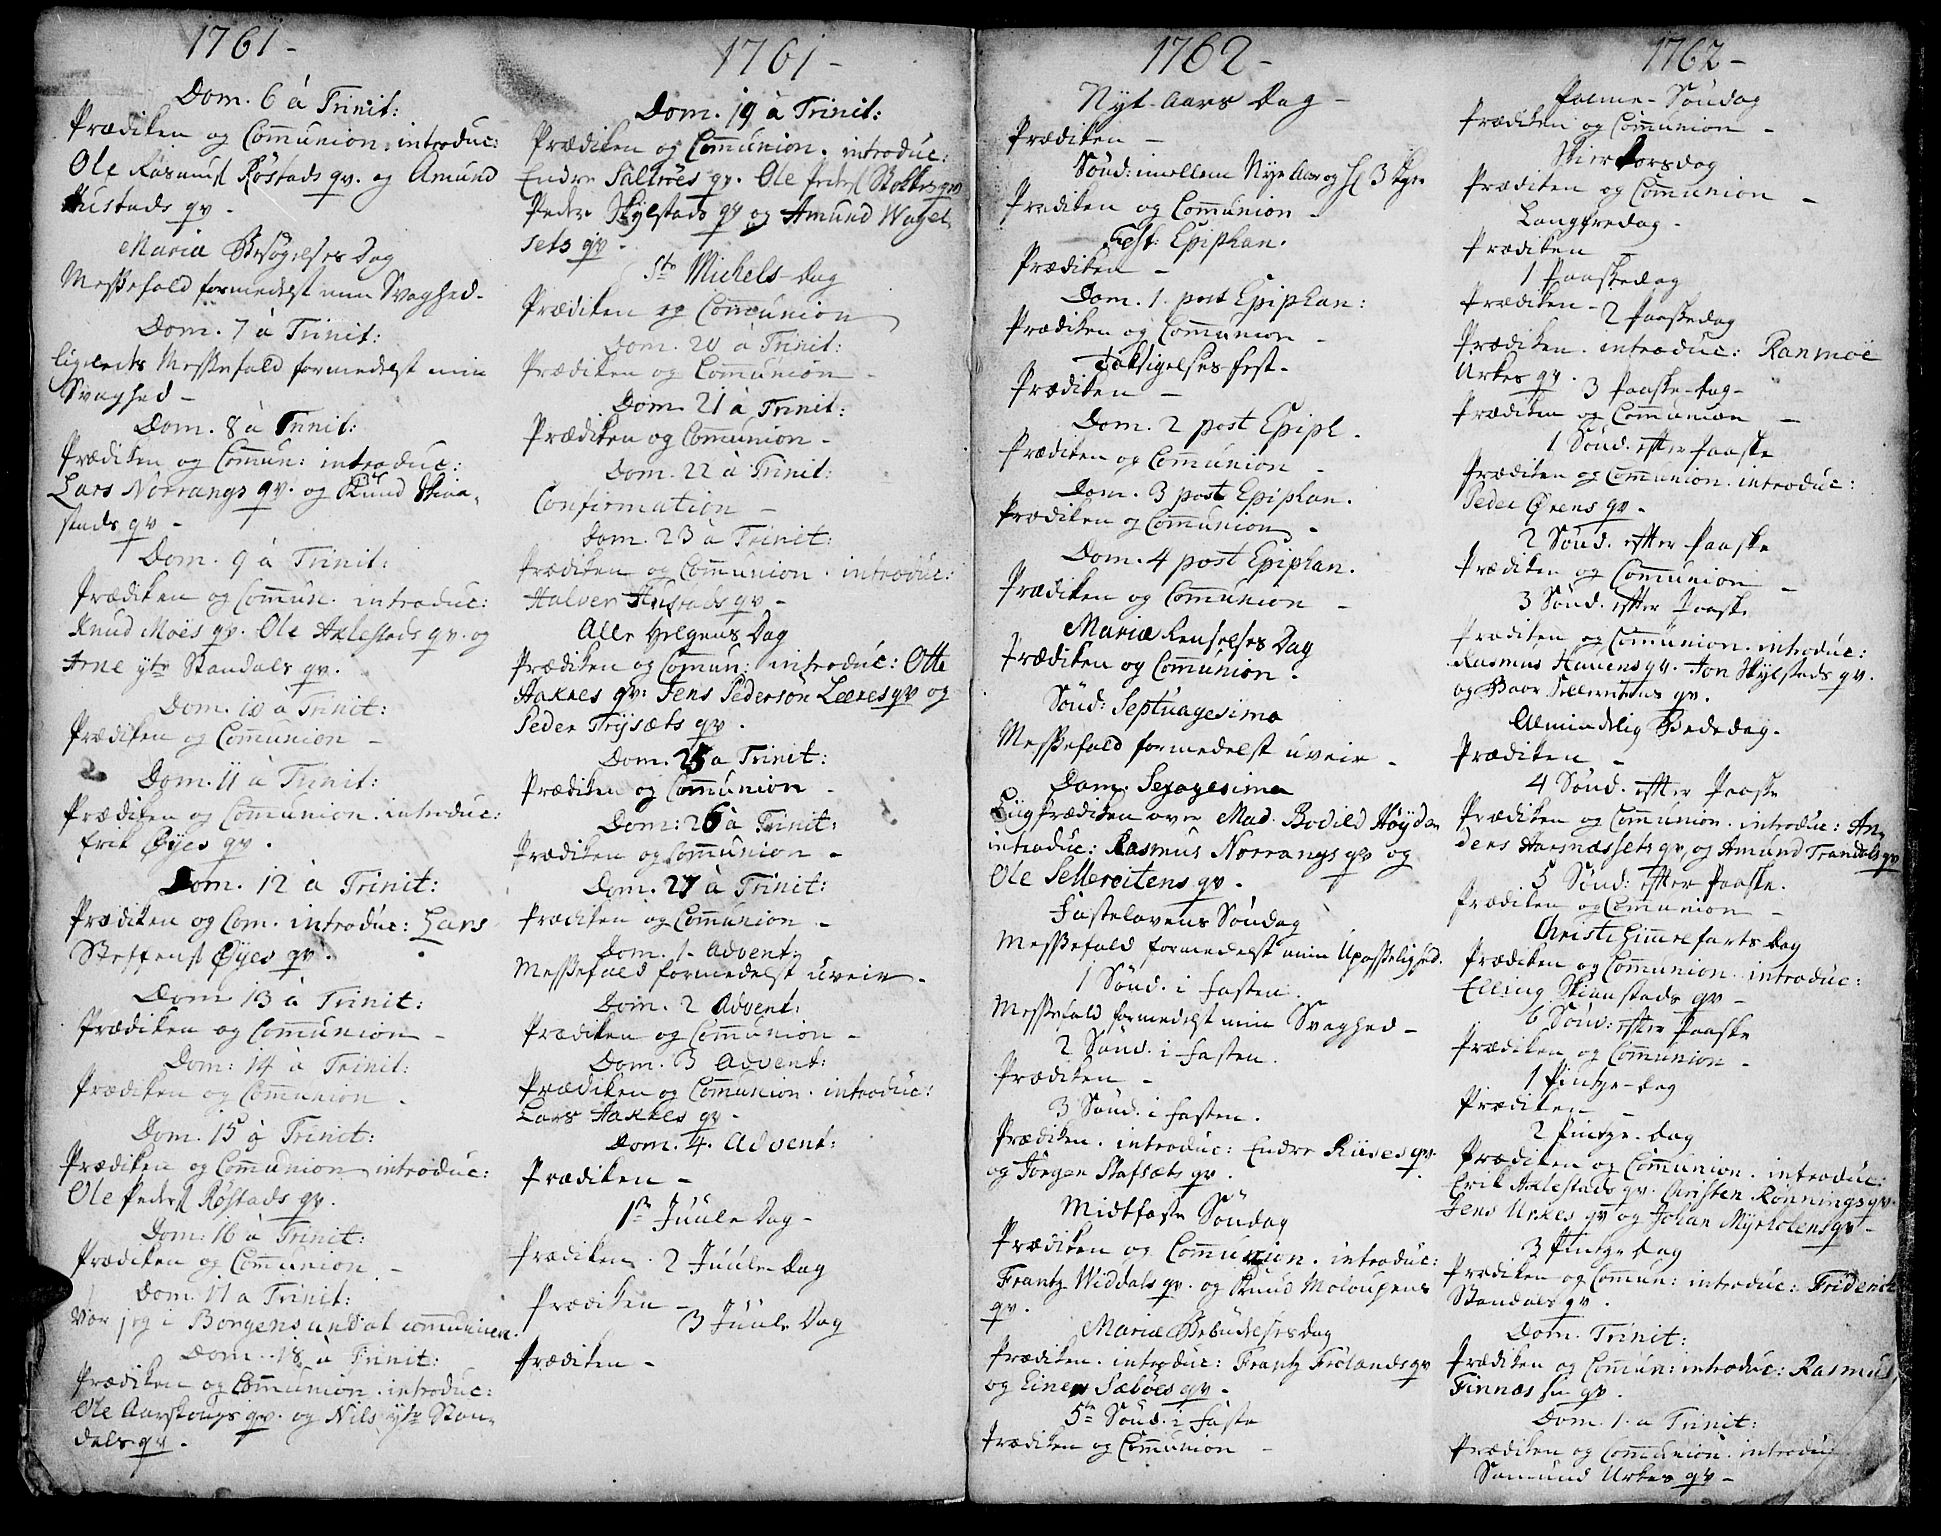 1761 -
Dom. 6 à Trinit:
Prædiken og Com̄union. introduc:
Ole Rasmus Røstads qv. og Amund
Hustads qv -
Maria Besøgelses Dag
Messefald formedelst min Svaghed -
Dom. 7 à Trinit:
ligeledes Messefald formedelst min
Svaghed -
Dom. 8 à Trinit:
Prædiken og Com̄un: introduc:
Lars Norrangs qv. og Knud Skiaa-
stads qv -
Dom. 9 à Trinit:
Prædiken og Com̄un. introduc:
Knud Moës qv. Ole Aklestads qv. og
Arne ytr Standals qv.
Dom. 10 à Trinit:
Prædiken og Com̄union -
Dom. 11 à Trinit:
Prædiken og Com̄union. introduc:
Erik Øyes qv.
Dom. 12 à Trinit:
Prædiken og Com. introduc: Lars
Steffens Øyes qv.
Dom 13 à Trinit:
Prædiken og Com̄union -
Dom: 14 à Trinit:
Prædiken og Com̄union -
Dom. 15 à Trinit:
Prædiken og Com̄union introduc:
Ole Peders Røstads qv.
Dom: 16 à Trinit:
Prædiken og Com̄union -
Dom. 17 à Trinit:
Var jeg i Borgensund at com̄unicere.
Dom. 18 à Trinit:
Prædiken og Com̄union. introduc:
Ole Aarskougs qv. og Nils ytr Stan-
dals qv -
1761 -
Dom. 19 à Trinit:
Prædiken og Com̄union. introduc:
Endre Saltrøes qv. Ole Peders Stokkes qv
Peder Skylstads qv og Amund Wagel-
sets qv -
Ste Michels Dag
Prædiken og Com̄union
Dom. 20 à Trinit:
Prædiken og Com̄union -
Dom. 21 à Trinit:
Prædiken og Com̄union -
Dom. 22 à Trinit:
Confirmation -
Dom. 23 à Trinit:
Prædiken og Com̄union. introduc:
Halvor Hustads qv -
Alle Helgens Dag
Prædiken og Com̄un: introduc: Otte
Aaknes qv. Jens Pederson Leenes qv og
Peder Trysæts qv.
Dom. 25 à Trinit:
Prædiken og Com̄union -
Dom: 26 à Trinit:
Prædiken og Com̄union -
Dom. 27 à Trinit:
Prædiken og Com̄union -
Dom. 1. Advent:
Messefald formedelst uveir -
Dom. 2 Advent:
Prædiken og Com̄union -
Dom. 3 Advent:
Prædiken og Com̄union. introduc:
Lars Aaknes qv -
Dom. 4. Advent:
Prædiken -
1ste Juule Dag -
Prædiken.
2 Juule Dag
Prædiken -
3 Juule Dag
Prædiken -
1762 -
Nyt-Aars Dag -
Prædiken -
Sønd: imellem Nye Aar og Hl 3 Kgr.
Prædiken og Com̄union -
Fest: Epiphan.
Prædiken -
Dom. 1. post Epiphan:
Prædiken og Com̄union -
Taksigelses fest -
Prædiken -
Dom. 2 post Epiph.
Prædiken og Com̄union -
Dom. 3 post Epiphan.
Prædiken og Com̄union -
Dom. 4 post Epiphan.
Prædiken og Com̄union -
Mariæ Renselses Dag
Prædiken og Com̄union.
Sønd: Septuagesima
Messefald formedelst uveir -
Dom: Sexagesima
Liigprædiken over Mad. Bodild Høydan
introduc: Rasmus Norrangs qv og
Ole Sellereitens qv.
Fastelavens Søndag
Messefald formedelst min Upasselighed.
1 Sønd. i Fasten.
Messefald formedelst min Svaghed -
2 Sønd. i Fasten.
Prædiken -
3 Sønd. i Fasten.
Prædiken. introduc: Endre Riises qv.
og Jørgen Stafsæts qv.
Midtfaste Søndag
Prædiken og Com̄union. introduc:
Frantz Widdals qv. og Knud Moloupens
qv.
Mariæ Bebudelsesdag
Prædiken. introduc: Frantz Frølands qv
og Einer Sæbøes qv -
5te Sønd. i Faste
Prædiken og Com̄union -
1762 -
Palme-Søndag
Prædiken og Com̄union -
Skiertorsdag
Prædiken og Com̄union -
Langfredag -
Prædiken -
1 Paaskedag
Prædiken -
2 Paaskedag
Prædiken. introduc: Ranmoë
Urkes qv.
3 Paaske-Dag -
Prædiken og Com̄union -
1 Sønd. efter Paaske
Prædiken og Com̄union. introduc:
Peder Ørens qv -
2 Sønd. efter Paaske
Prædiken og Com̄union -
3 Sønd. efter Paaske
Prædiken og Com̄union. introduc:
Rasmus Hauens qv. Jon Skylstads qv.
og Baar Sellereitens qv.
Almindelig Bededag -
Prædiken -
4 Sønd. efter Paaske
Prædiken og Com̄union. introduc: An-
ders Harsnæssets qv og Amund Trandals qv
5 Sønd: efter Paaske.
Prædiken og Com̄union -
Christi Himmelfarts Dag
Prædiken og Com̄union. introduc:
Elling Skiaastads qv -
6 Sønd: efter Paaske
Prædiken og Com̄union -
1 Pintze-Dag
Prædiken -
2 Pintze-Dag
Prædiken og Com̄union. introduc:
Erik Aklestads qv. Christen Rønnings qv.
Jens Urkes qv og Johan Myrholens qv -
3 Pintze Dag
Prædiken og Com̄un: introduc: Friderik
Standals qv.
Dom. Trinit:
Prædiken og Com̄un: introduc: Rasmus
Finnæs hs qv.
Dom. 1. à Trinit:
Prædiken og Com̄union. introduc
Samund Urkes qv -